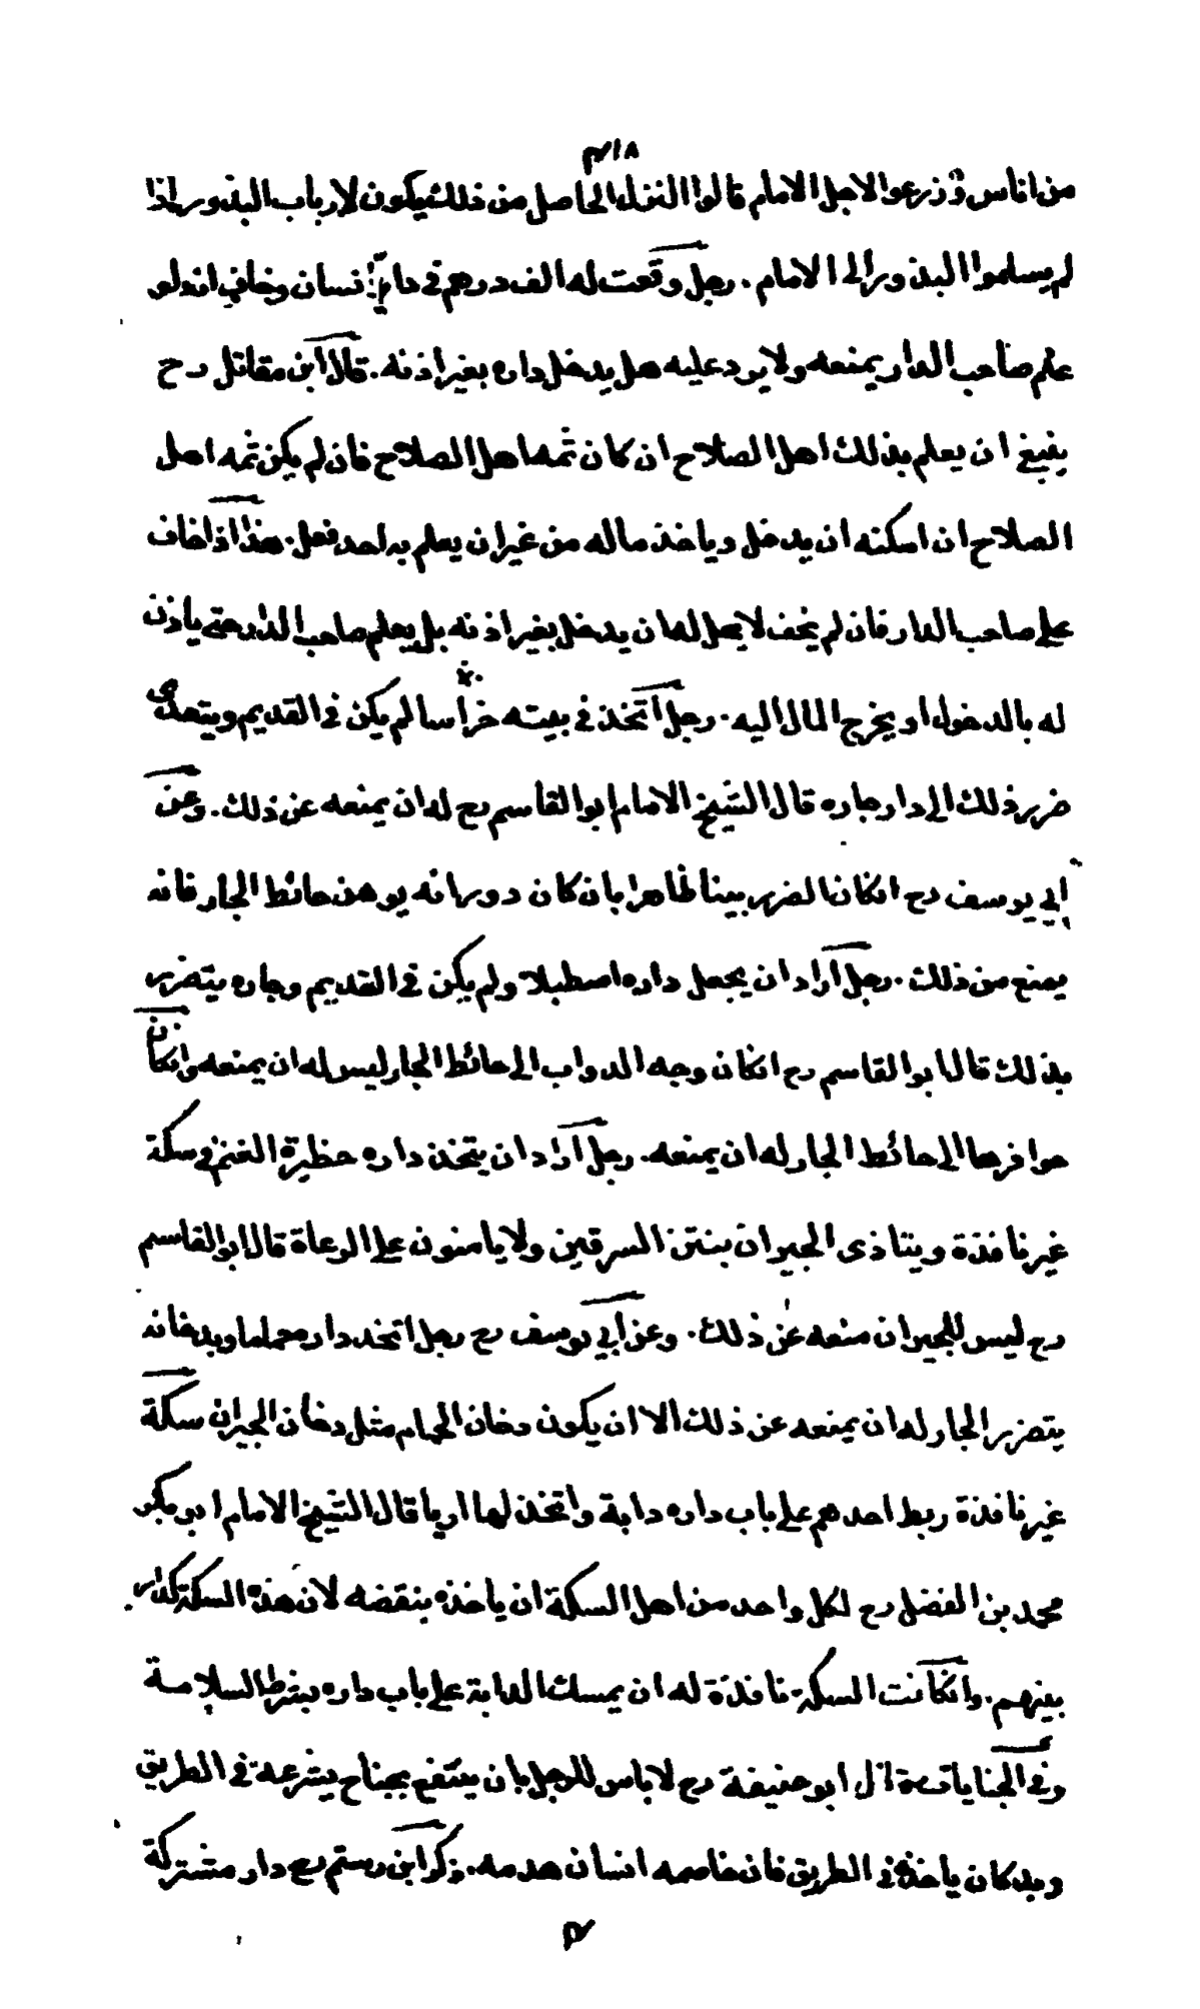 ٤١٨
من اناس وزرعوا لاجل الامام قالوا النزل الحاصل من ذلك يكون لارباب البذور اذا
لم يسلموا البذور الى الامام . رجل وقعت له الف درهم في دار انسان وخاف انه لو
علم صاحب الدار يمنعه ولا يرد عليه هل يدخل داره بغير اذنه . قال ابن مقاتل رح
ينبغي ان يعلم بذلك اهل الصلاح ان كان ثمه اهل الصلاح فان لم يكن ثمه اهل
الصلاح ان امكنه ان يدخل وياخذ ماله من غير ان يعلم به احد فعل . هذا اذا خاف
على صاحب الدار فان لم يخف لا يحل له ان يدخل بغير اذنه بل يعلم صاحب الدار حتى ياذن
له بالدخول او يخرج المال اليه . رجل اتخذ في بيته خراسا لم يكن في القديم ويتعدى
ضرر ذلك الى دار جاره قال الشيخ الامام ابو القاسم رح له ان يمنعه عن ذلك . وعن
ابي يوسف رح انكان الضرر بينا ظاهرا بان كان دورانه يوهن حائط الجار فانه
يمنع من ذلك . رجل اراد ان يجعل داره اصطبلا ولم يكن في القديم وجاره يتضرر
بذلك قال ابو القاسم رح انكان وجه الدواب الى حائط الجار ليس له ان يمنعه وانكان
حوافرها الى حائط الجار له ان يمنعه . رجل اراد ان يتخذ داره حظيرة الغنم في سكة
غير نافذة ويتاذى الجيران بنتن السرقين ولا يامنون على الرعاة قال ابو القاسم
رح ليس للجيران منعه عن ذلك . وعن ابي يوسف رح رجل اتخذ داره حماما وبدخانه
يتضرر الجار له ان يمنعه عن ذلك الا ان يكون دخان الحمام مثل دخان الجيران سكة
غير نافذة ربط احدهم على باب داره دابة واتخذ لها اريا قال الشيخ الامام ابو بكر
محمد بن الفضل رح لكل واحد من اهل السكة ان ياخذه بنقضه لان هذه السكة كدار
بينهم . وانكانت السكة نافذة له ان يمسك الدابة على باب داره بشرط السلامة
وفي الجنايات قال ابو حنيفة رح لا باس للرجل بان ينتفع بجناح يشرعه في الطريق
وبدكان ياخذه في الطريق فان خاصمه انسان هدمه . ذكر ابن رستم رح دار مشتركة